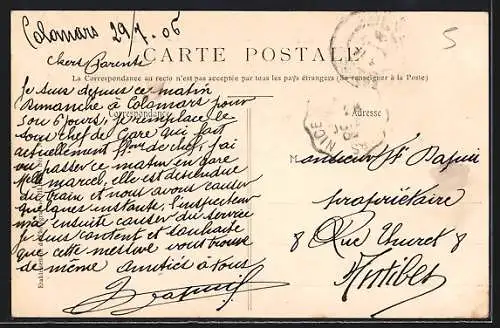 Colomars 29/7 06
5
CARTE POSTALE
Chers Parents
La Correspondance au recto n'est pas acceptée par tous les pays étrangers (Se renseigner à la Poste)
Correspondance
Adresse
Je suis depuis ce matin
Dimanche à Colomars pour
5 ou 6 jours, je remplace le
sous chef de Gare qui fait
actuellement de chef, j'ai
vu passer ce matin en gare
Melle Marcel, elle est descendue
du train et nous avons causer
quelques instants, l'inspecteur
m'a ensuite causer du service
Je suis content et souhaite
que cette message vous trouve
de même Amitiés à Vous
NICE
Monsieur
propriétaire
8 Rue 8
Antibes